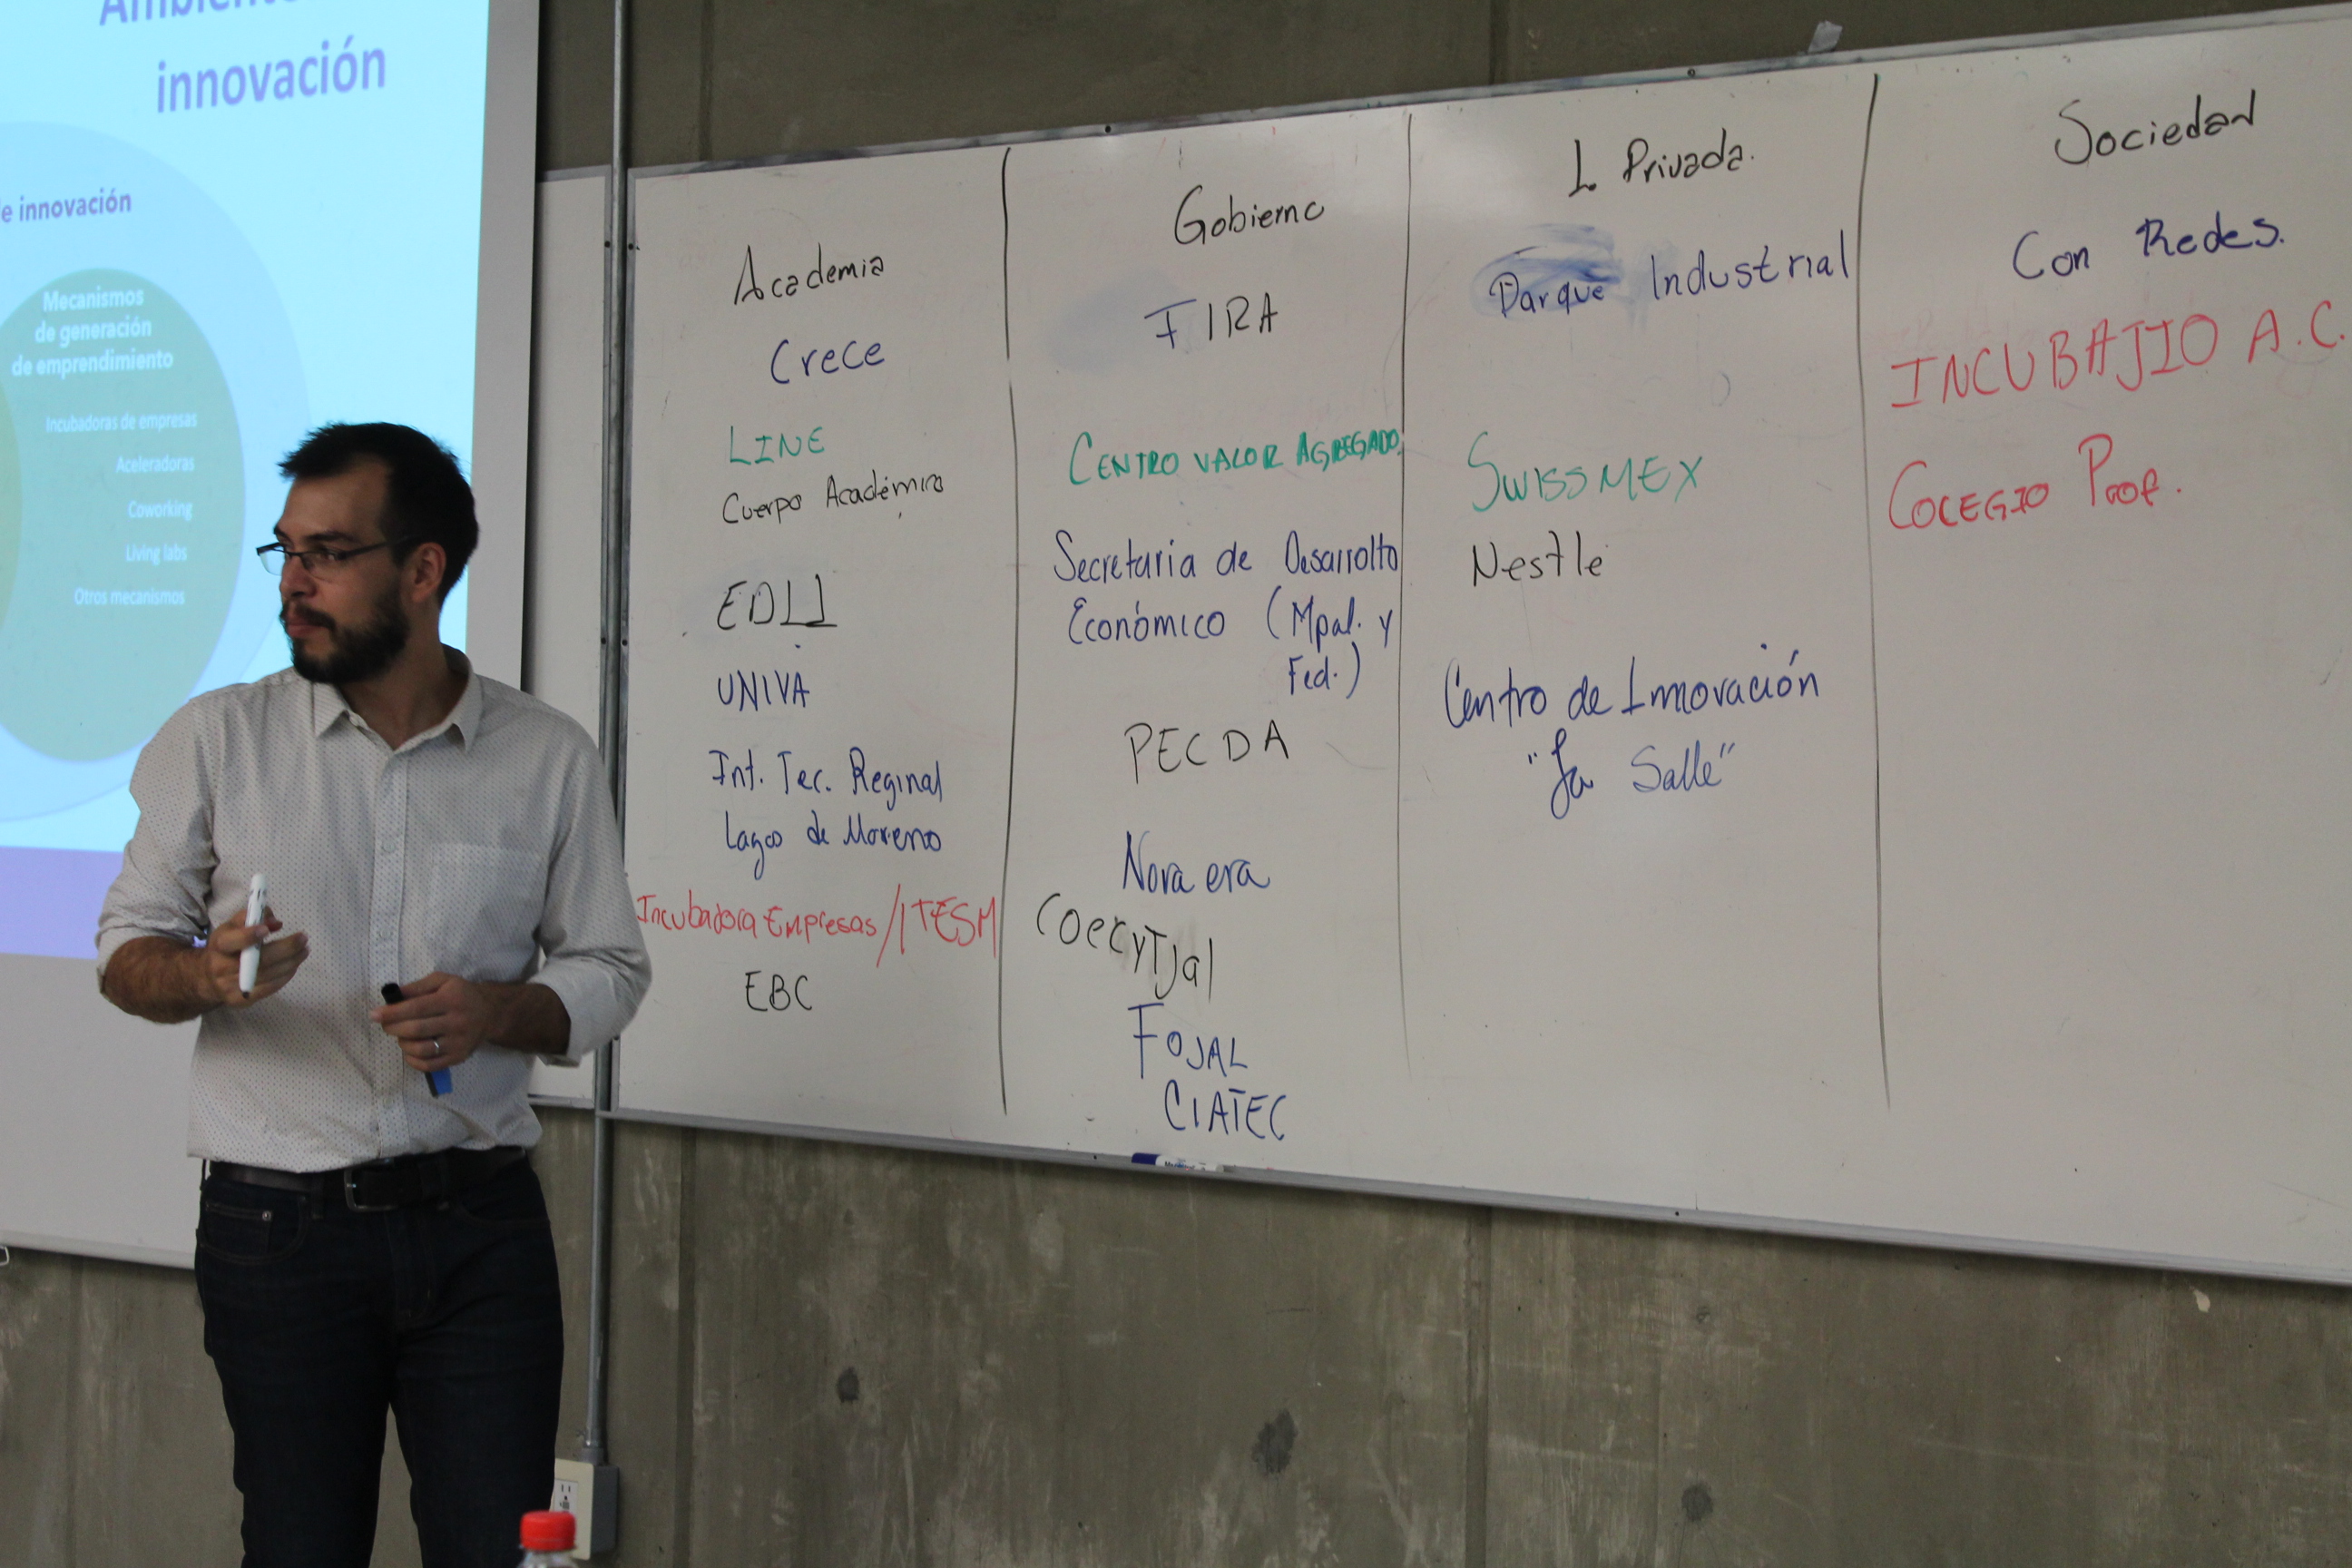 innovación
e innovación
Mecanismos
de generación
de emprendimiento
Incubadoras de empresas
Aceleradoras
Coworking
Living labs
Otros mecanismos
Academia
Crece
LINE
Cuerpo Académico
UNIVA
Int. Tec. Reginal
Lagos de Moreno
Incubadora Empresas/ITESM
EBC
Gobierno
FIRA
CENTRO VALOR AGREGADO.
Secretaria de Desarrollo
Económico (Mpal. y
Fed.)
PECDA
Nova era
CoecyTJal
FOJAL
CIATEC
I. Privada.
Parque Industrial
SWISSMEX
Nestle
Centro de Innovación
"La Salle"
Sociedad
Con Redes.
INCUBAJIO A.C.
COLEGIO Prof.